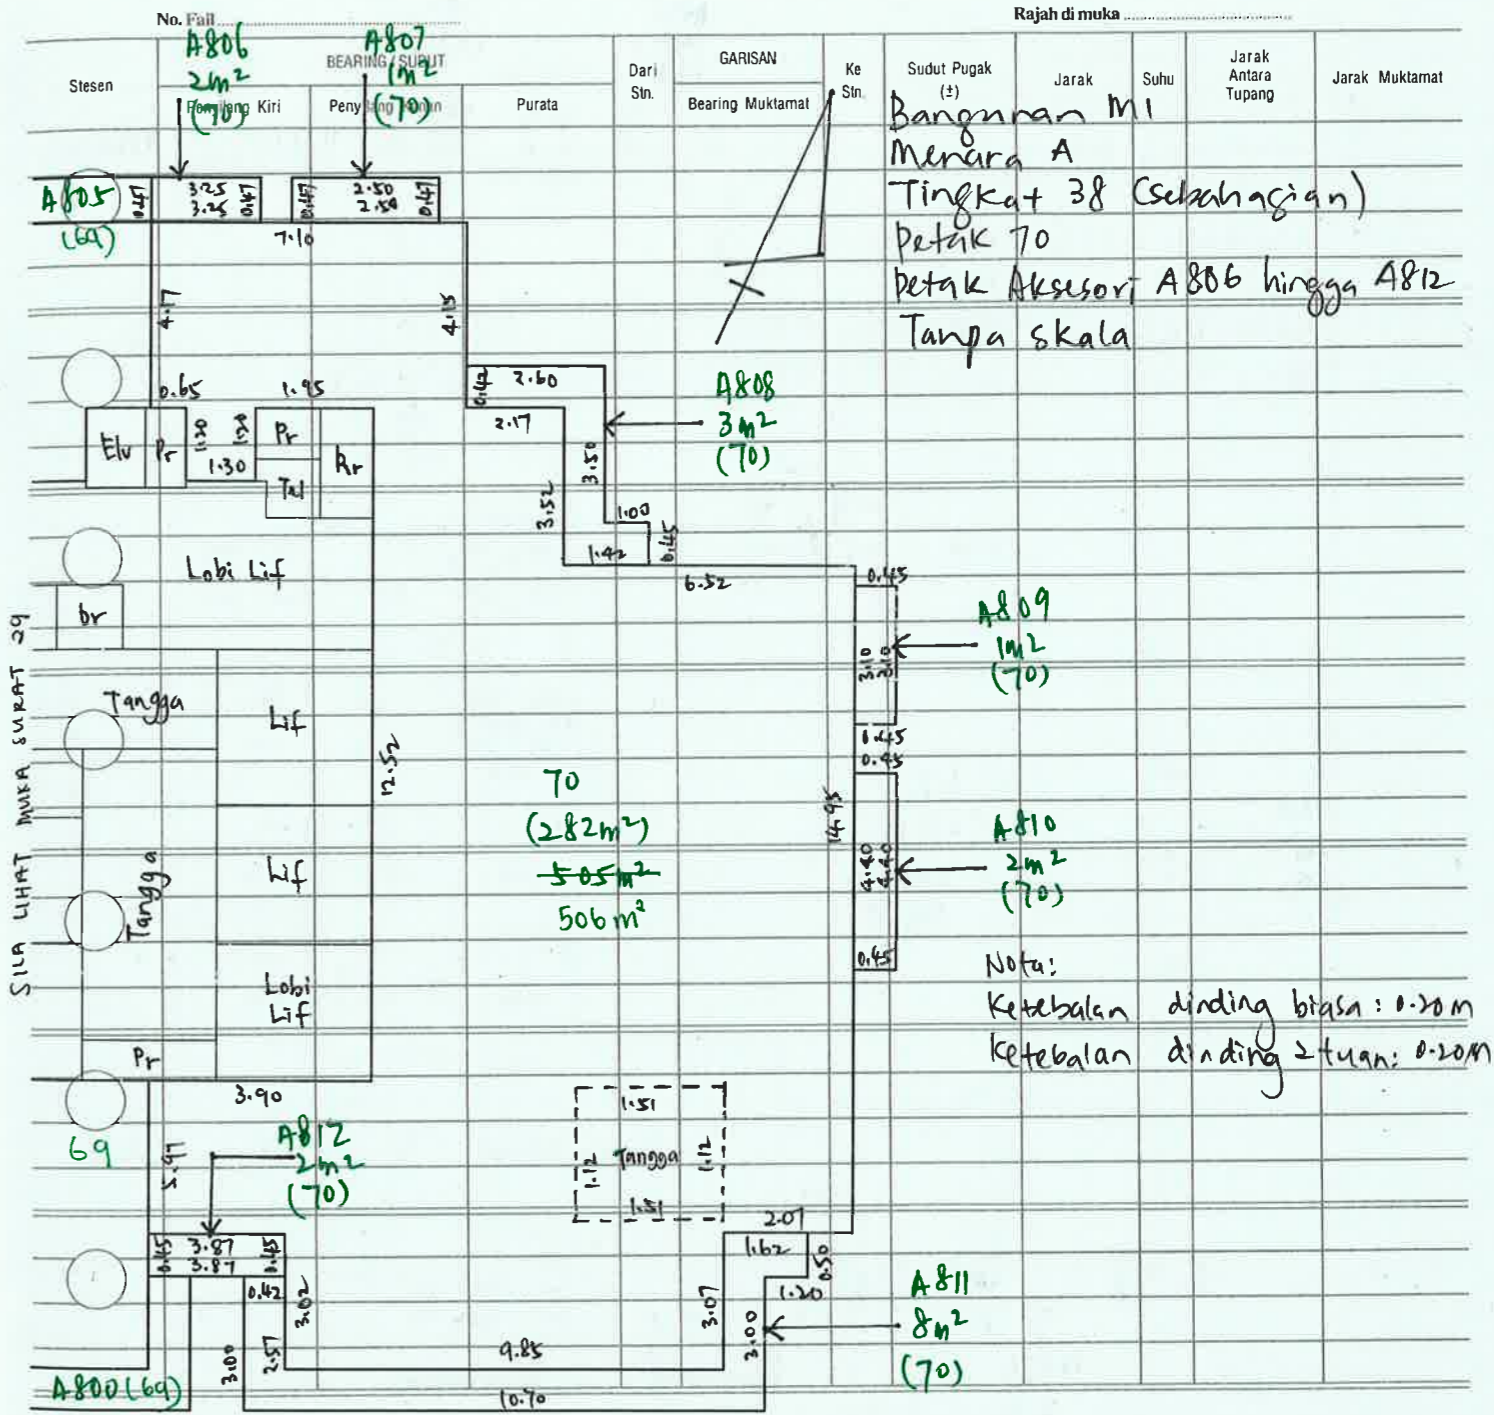 No. Fail
Rajah di muka
Stesen
BEARING / SUDUT
Penyilang Kiri
Penyilang Kanan
Purata
Dari Stn.
GARISAN
Bearing Muktamat
Ke Stn.
Sudut Pugak (±)
Jarak
Suhu
Jarak Antara Tupang
Jarak Muktamat
A806
2m²
(70)
A807
1m²
(70)
Bangunan M1
Menara A
Tingkat 38 (sebahagian)
Petak 70
Petak Aksesori A806 hingga A812
Tanpa skala
A805
(69)
0.47
3.25
3.25
0.47
0.47
2.50
2.50
0.47
7.10
4.17
4.15
0.65
1.95
Elv
Pr
1.20
1.20
1.30
Pr
Tel
Rr
0.42
2.60
2.17
3.50
3.52
1.00
1.42
0.45
6.52
A808
3m²
(70)
Lobi Lif
br
Tangga
Lif
12.52
Tangga
Lif
Lobi Lif
Pr
SILA LIHAT MUKA SURAT 29
70
(282m²)
505m²
506m²
14.95
0.45
3.10
3.10
0.45
A809
1m²
(70)
0.45
4.40
4.40
0.45
A810
2m²
(70)
Nota:
Ketebalan dinding biasa: 0.20m
Ketebalan dinding 2 tuan: 0.20m
3.90
69
5.97
A812
2m²
(70)
1.51
1.12
Tangga
1.12
1.51
0.45
3.87
3.87
0.45
0.42
3.02
2.57
3.00
2.07
1.62
0.50
1.20
3.07
3.00
A811
8m²
(70)
9.85
10.70
A800 (69)